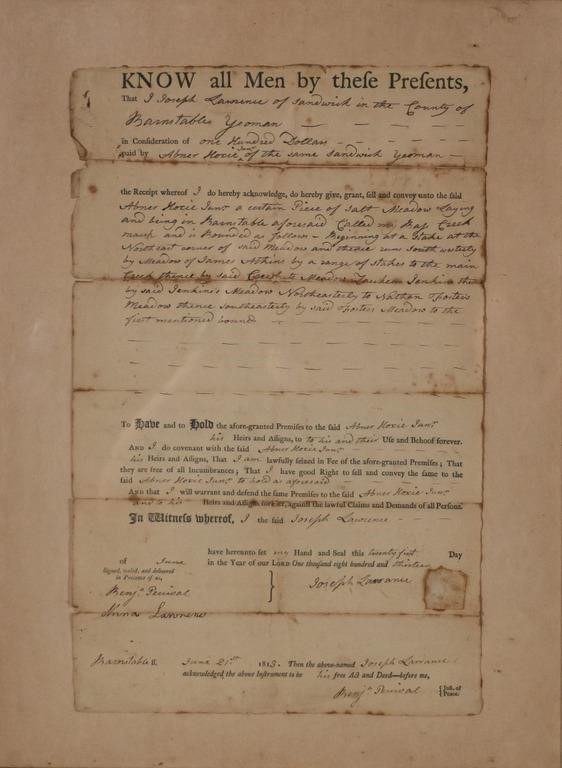 KNOW all Men by theſe Preſents,
That I Joseph Lawrence of Sandwich in the County of
Barnstable Yeoman
in Conſideration of one Hundred Dollars
paid by Abner Hoxie Junr of the same Sandwich Yeoman
the Receipt whereof I do hereby acknowledge, do hereby give, grant, ſell and convey unto the ſaid
Abner Hoxie Junr a certain Piece of Salt Meadow Laying
and being in Barnstable aforesaid Called Bass Creek
marsh and is Bounded as follows - Beginning at a Stake at the
Northeast corner of said Meadow and thence runs Southwesterly
by Meadow of James Atkins by a range of Stakes to the main
Creek thence by said Creek to Meadow Jenkins then
by said Jenkins's Meadow Northeasterly to Nathan Fosters
Meadow thence Southeasterly by said Fosters Meadow to the
first mentioned bounds
To Have and to Hold the afore-granted Premiſes to the ſaid Abner Hoxie Junr
his Heirs and Aſſigns, to to his and their Uſe and Behoof forever.
AND I do covenant with the ſaid Abner Hoxie Junr
his Heirs and Aſſigns, That I am lawfully ſeized in Fee of the afore-granted Premiſes; That
they are free of all Incumbrances; That I have good Right to ſell and convey the ſame to the
ſaid Abner Hoxie Junr to hold as aforesaid
AND that I will warrant and defend the ſame Premiſes to the ſaid Abner Hoxie Junr
and to his Heirs and Aſſigns forever, againſt the lawful Claims and Demands of all Perſons.
In Witneſs whereof, I the ſaid Joseph Lawrence
have hereunto ſet my Hand and Seal this twenty first Day
of June in the Year of our LORD One thouſand eight hundred and thirteen
Signed, sealed, and delivered
in Presence of us,
Joseph Lawrence
Benjn Percival
Anna Lawrence
Barnstable ss. June 21st 1813. Then the above-named Joseph Lawrence
acknowledged the above Inſtrument to be his free Act and Deed—before me,
Benjn Percival {Juſt. of Peace.